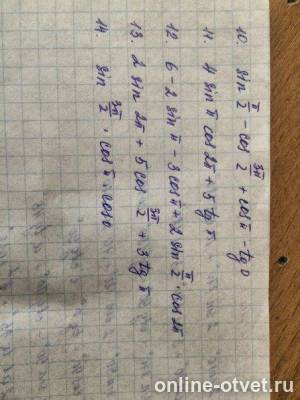 10. sin π/2 - cos 3π/2 + cos π - tg 0
11. 4 sin π cos 2π + 5 tg π
12. 6 - 2 sin π - 3 cos π + 2 sin π/2 · cos 2π
13. 2 sin 2π + 5 cos 3π/2 + 3 tg π
14. sin 3π/2 · cos π · cos 0
online-otvet.ru